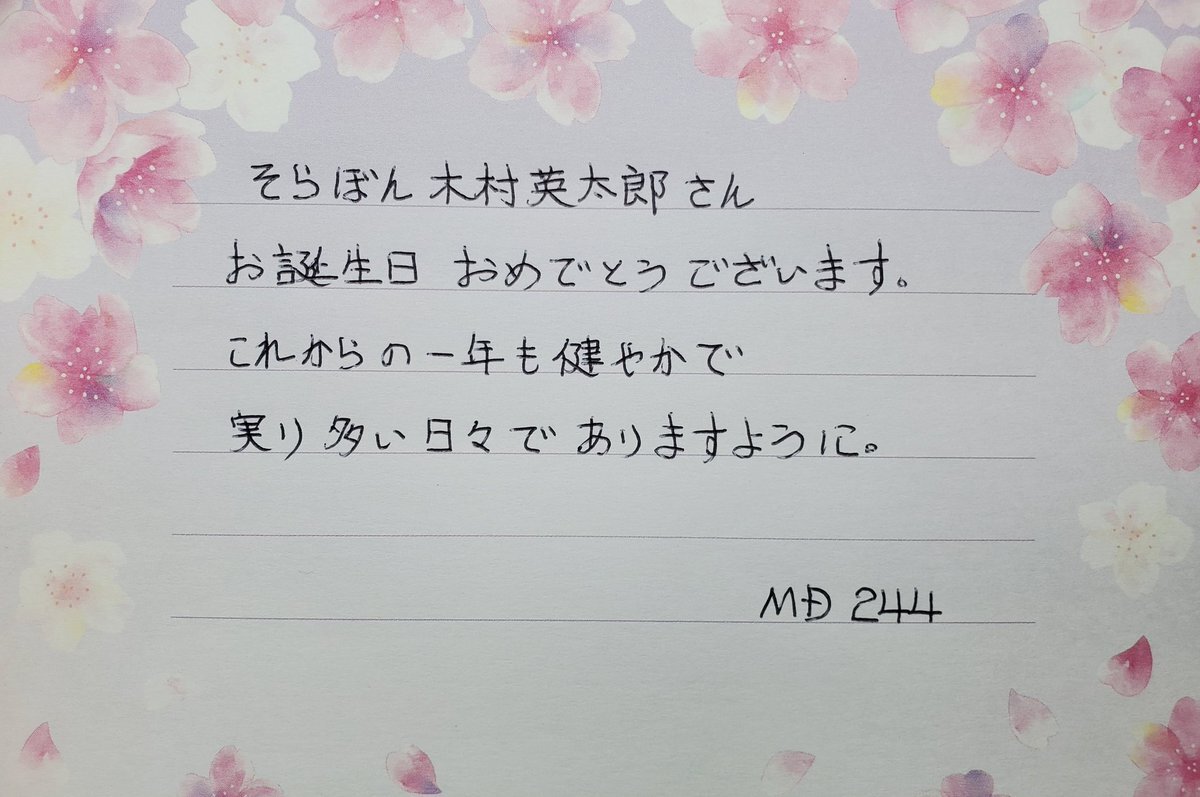 そらぼん 木村英太郎 さん
お誕生日 おめでとうございます。
これからの一年も健やかで
実り多い日々で ありますように。
MD 244